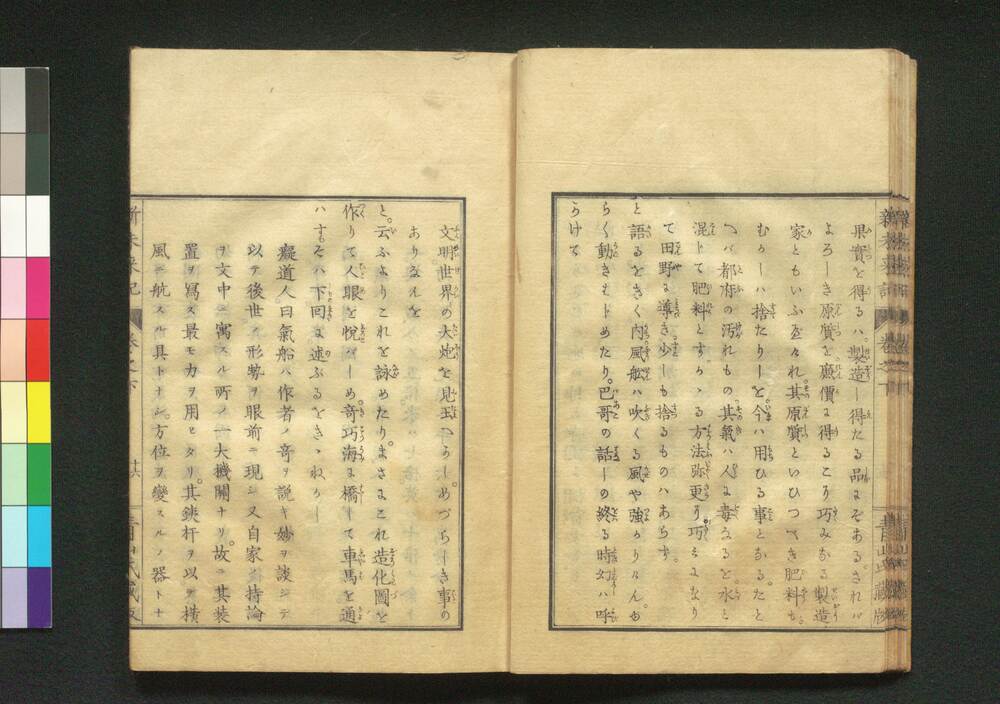 果實を得るハ。製造し得たる品にぞある。されバ
よろしき原質を廉價に得るこそ巧みなる製造
家ともいふべけれ其原質といひつべき肥料も
むかしハ捨たりしを。今ハ用ひる事となる。たと
へバ都府の汚れもの其氣ハ人に毒なるを水と
混じて肥料とすかゝる方法弥更に巧になり
て田野に導き少しも捨るものハあらず。
と語るをきく内風舩ハ吹くる風や強かりけん。や
らく動きそめたり。巴哥の話しの終る時幻ハ呼
らけて
文明世界の大炮を見玉へかし。めづらしき事の
ありなんを
と。云ふよりこれを詠めたり。まさにこれ造化圖を
作りて人眼を悦バしめ。奇巧海に橋して車馬を通
ハす。そハ下回に述ぶるをきゝねかし
癡道人曰氣船ハ作者ノ奇ヲ説キ妙ヲ談シテ
以テ後世ノ形勢ヲ眼前ニ現シ又自家ノ持論
ヲ文中ニ寓スル所ノ一大機關ナリ。故ニ其装
置ヲ寫ス最モ力ヲ用ヒタリ。其鋏杆ヲ以テ横
風ニ航スル具トナシ。方位ヲ變スルノ器トナ
新未来記
青山氏蔵版